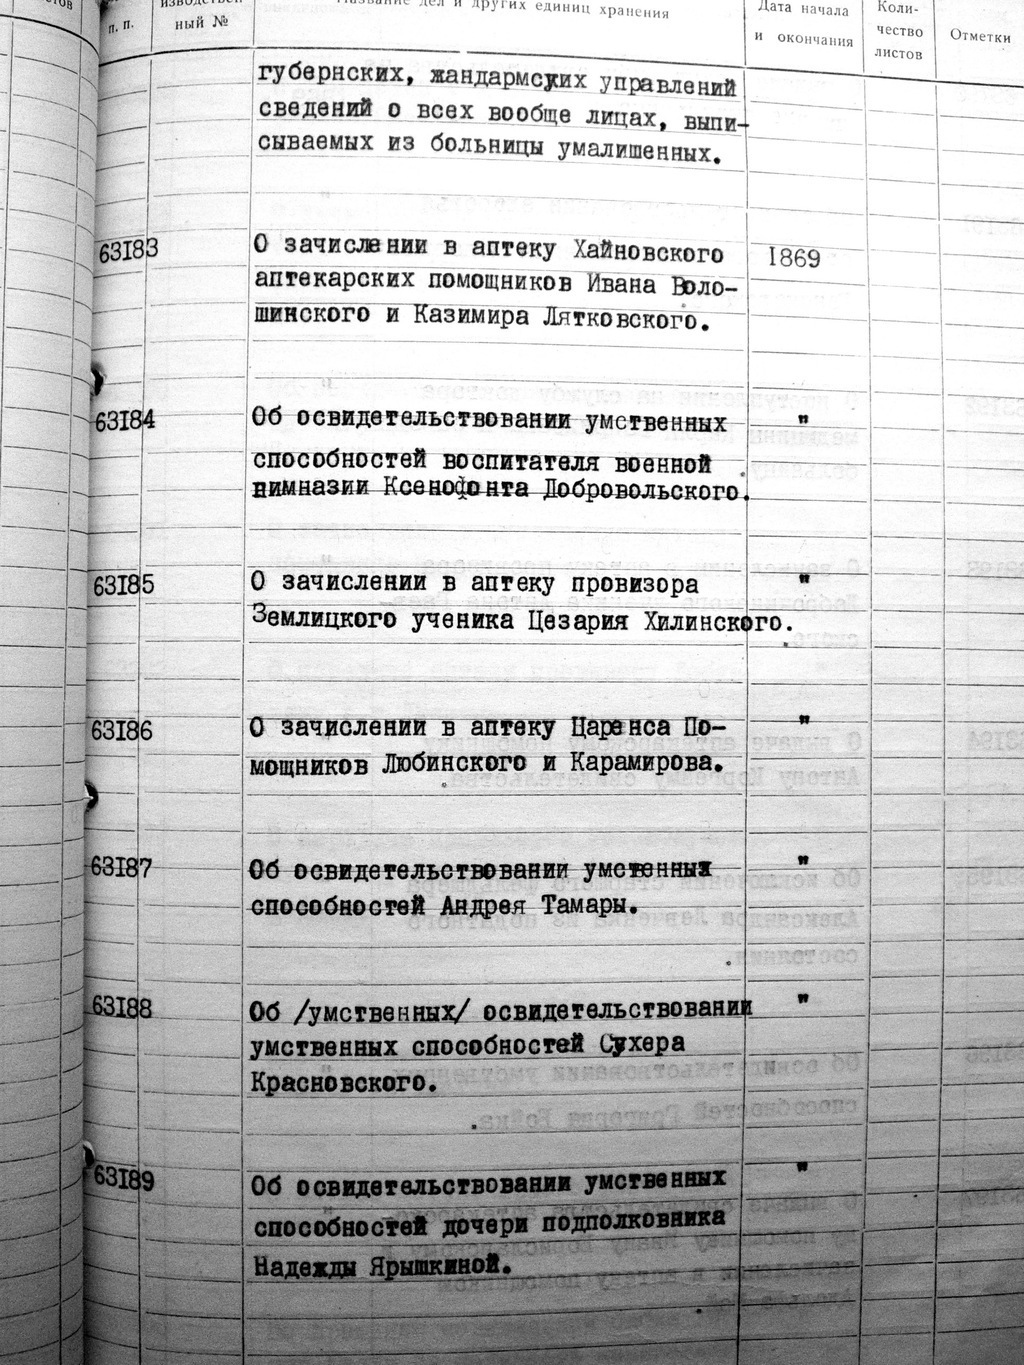 п. п.
ный №
Название дел и других единиц хранения
Дата начала
и окончания
Коли-
чество
листов
Отметки
губернских, жандармских управлений
сведений о всех вообще лицах, выпи-
сываемых из больницы умалишенных.
63I83
О зачислении в аптеку Хайновского
I869
аптекарских помощников Ивана Воло-
шинского и Казимира Лятковского.
63I84
Об освидетельствовании умственных
"
способностей воспитателя военной
гимназии Ксенофонта Добровольского.
63I85
О зачислении в аптеку провизора
"
Землицкого ученика Цезария Хилинского.
63I86
О зачислении в аптеку Царенса По-
"
мощников Любинского и Карамирова.
63I87
Об освидетельствовании умственных
"
способностей Андрея Тамары.
63I88
Об /умственных/ освидетельствовании
"
умственных способностей Сухера
Красновского.
63I89
Об освидетельствовании умственных
"
способностей дочери подполковника
Надежды Ярышкиной.